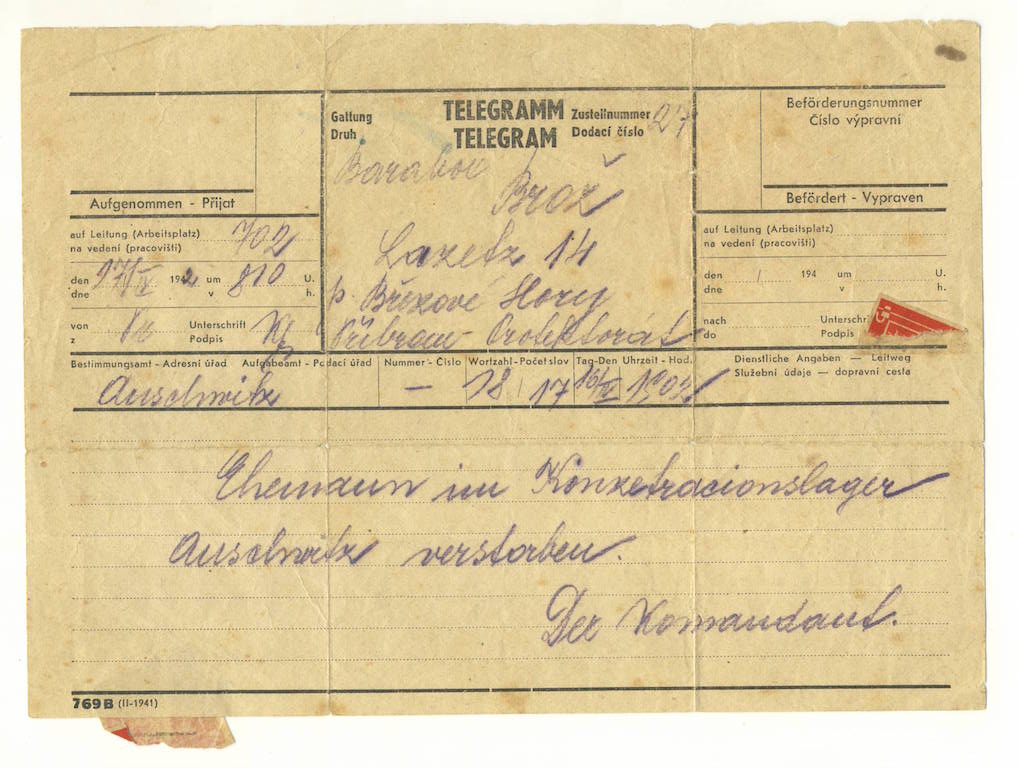 Gattung TELEGRAMM Zustellnummer 27
Druh TELEGRAM Dodací číslo
Beförderungsnummer
Číslo výpravní
Brož
Aufgenommen - Přijat
Befördert - Vypraven
auf Leitung (Arbeitsplatz) 702
na vedení (pracovišti)
Lazetz 14
auf Leitung (Arbeitsplatz)
na vedení (pracovišti)
den 17/IV 1942 um 810 U.
dne v h.
p. Březové Hory
den 194 um U.
dne v h.
von Unterschrift
z Podpis
Příbram - Protektorát
nach Unterschr
do Podpis
Bestimmungsamt - Adresní úřad Aufgabeamt - Podací úřad Nummer - Číslo Wortzahl - Počet slov Tag - Den Uhrzeit - Hod.
Auschwitz — 18 17 16/IV 1903
Dienstliche Angaben — Leitweg
Služební údaje — dopravní cesta
Ehemann im Konzetracionslager
Auschwitz verstorben.
Der Komandant.
769 B (II-1941)